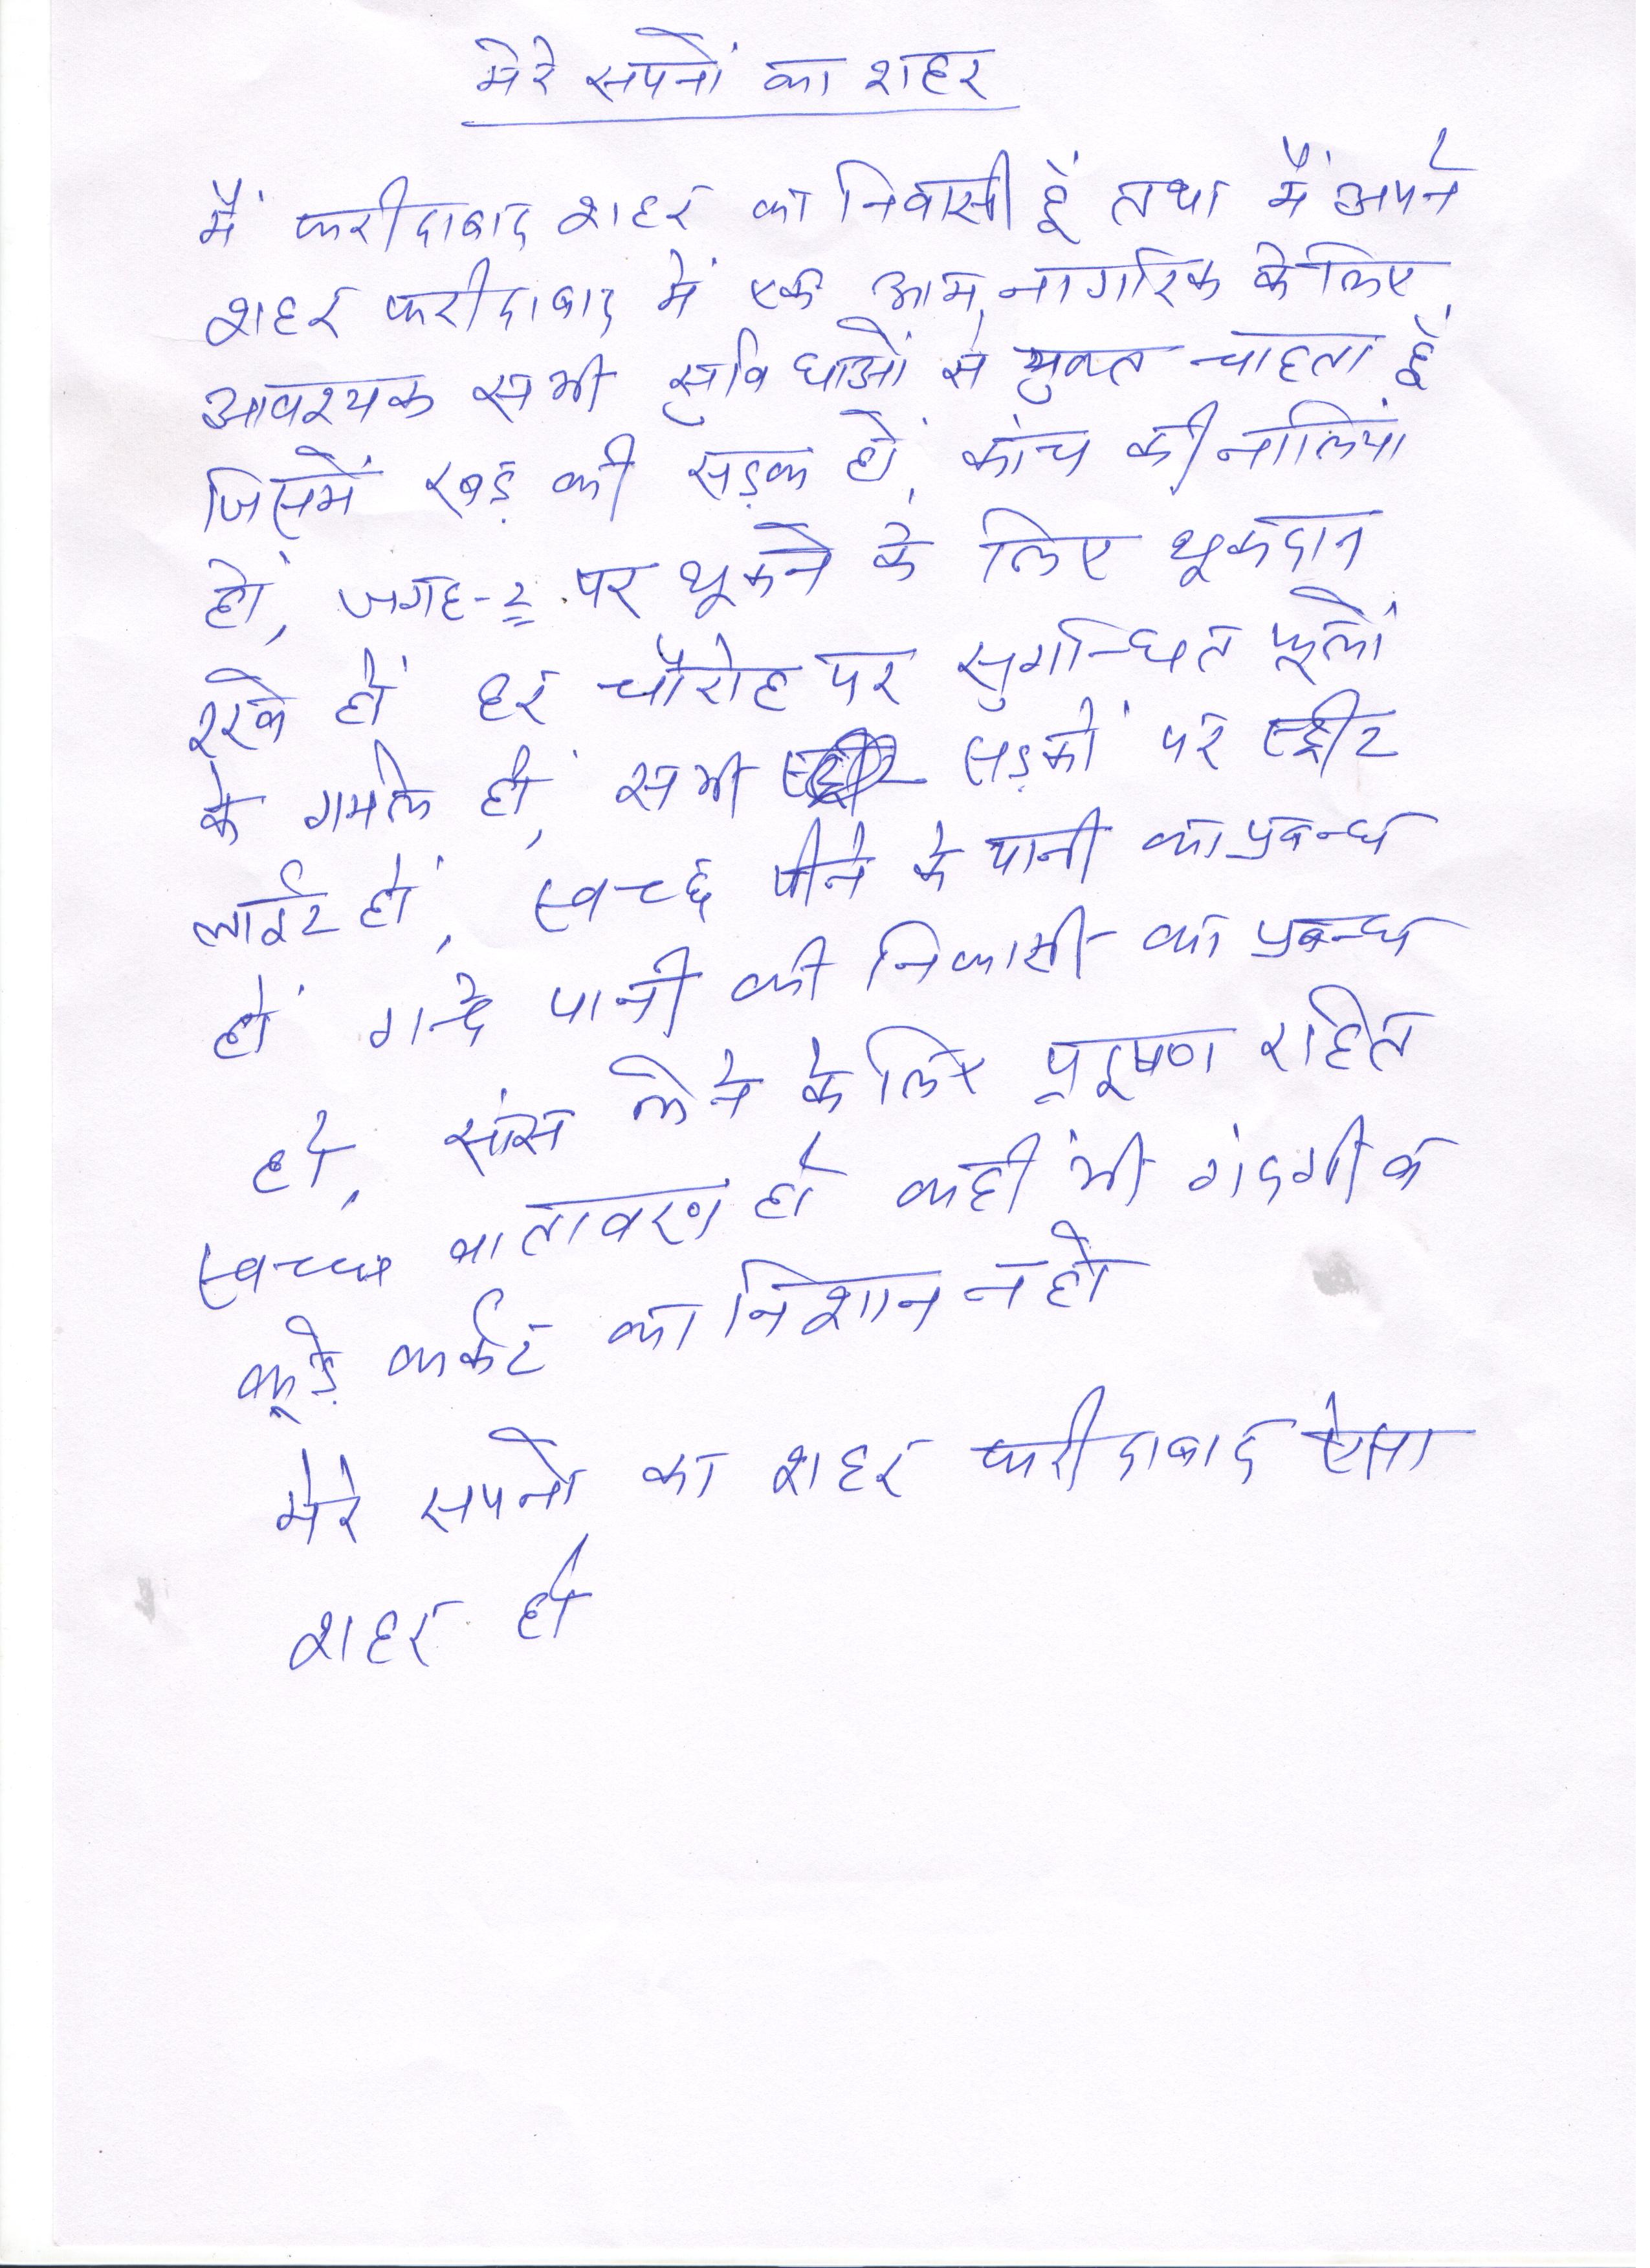 मेरे सपनों का शहर
मैं फरीदाबाद शहर का निवासी हूँ तथा मैं अपने
शहर फरीदाबाद में एक आम नागरिक के लिए
आवश्यक सभी सुविधाओं से युक्त चाहता हूँ
जिसमें रबड़ की सड़क हो, कांच की नालियां
हों, जगह-२ पर थूकने के लिए थूकदान
रखे हों हर चौराहे पर सुगन्धित फूलों
के गमले हों, सभी सड़कों पर स्ट्रीट
लाईट हों, स्वच्छ पीने के पानी का प्रबन्ध
हों गन्दे पानी की निकासी का प्रबन्ध
हो, सांस लेने के लिए प्रदूषण रहित
स्वच्छ वातावरण हो कहीं भी गंदगी के
कूड़े कर्कट का निशान न हो
मेरे सपनो का शहर फरीदाबाद ऐसा
शहर हो